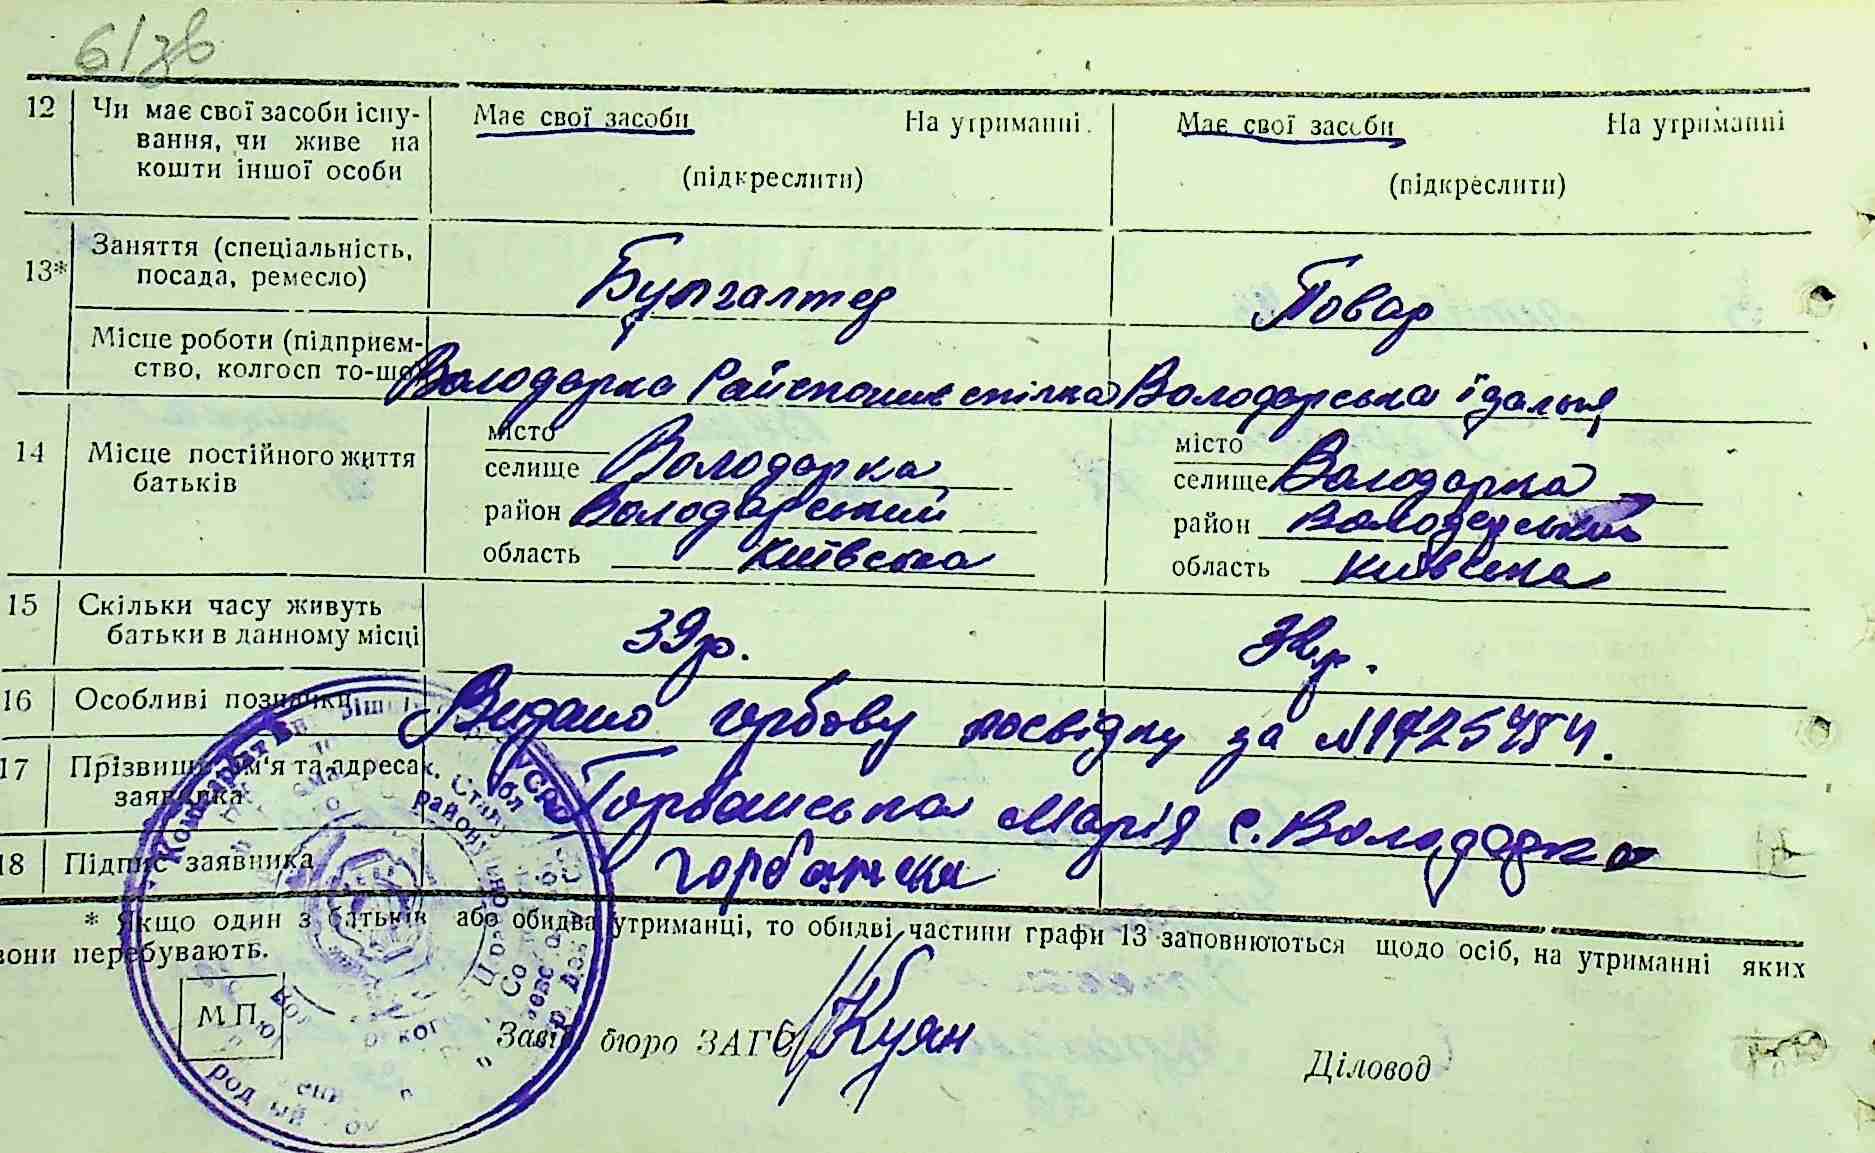 6/зв
12 Чи має свої засоби існу-
вання, чи живе на
кошти іншої особи
Має свої засоби На утриманні.
(підкреслити)
Має свої засоби На утриманні
(підкреслити)
13* Заняття (спеціальність,
посада, ремесло)
Бухгалтер
Повар
Місце роботи (підприєм-
ство, колгосп то-що)
Володарка Райспожив спілка Володарська їдальня
14 Місце постійного життя
батьків
місто
селище Володарка
район Володарський
область Київська
місто
селище Володарка
район Володарський
область Київська
15 Скільки часу живуть
батьки в данному місці
39 р.
р.
16 Особливі позначки
Видано гербову посвідку за №
17 Прізвище, ім'я та адреса
заявника
Горбанська Марія с. Володарка
18 Підпис заявника
* Якщо один з батьків або обидва утриманці, то обидві частини графи 13 заповнюються щодо осіб, на утриманні яких
вони перебувають.
М.П.
Завід. бюро ЗАГС Куян
Діловод